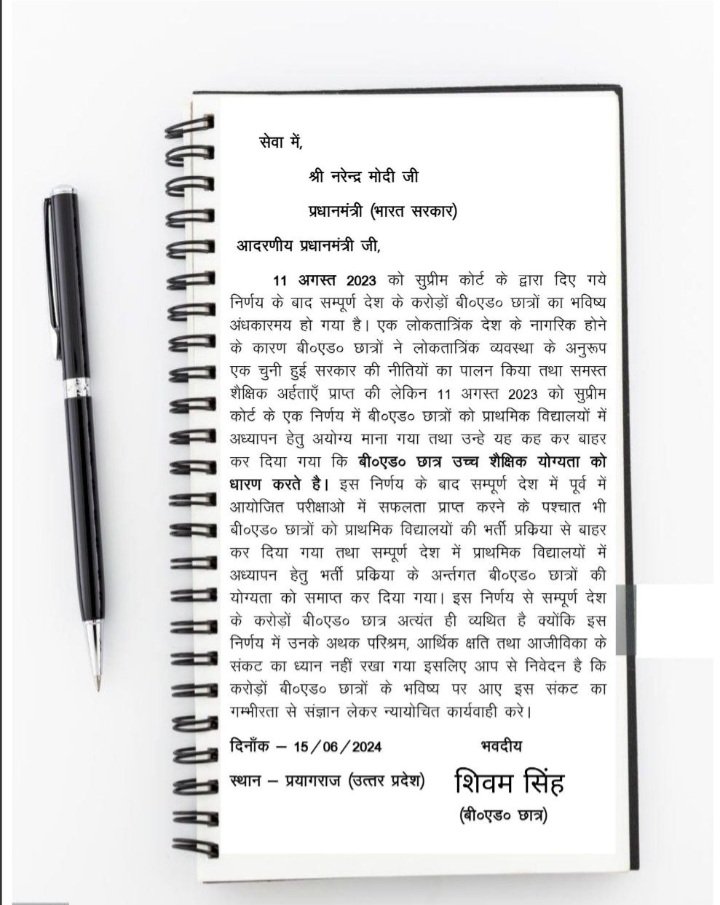 सेवा में,
श्री नरेन्द्र मोदी जी
प्रधानमंत्री (भारत सरकार)
आदरणीय प्रधानमंत्री जी,
11 अगस्त 2023 को सुप्रीम कोर्ट के द्वारा दिए गये
निर्णय के बाद सम्पूर्ण देश के करोड़ों बी०एड० छात्रों का भविष्य
अंधकारमय हो गया है। एक लोकतात्रिंक देश के नागरिक होने
के कारण बी०एड० छात्रों ने लोकतात्रिंक व्यवस्था के अनुरूप
एक चुनी हुई सरकार की नीतियों का पालन किया तथा समस्त
शैक्षिक अर्हताएँ प्राप्त की लेकिन 11 अगस्त 2023 को सुप्रीम
कोर्ट के एक निर्णय में बी०एड० छात्रों को प्राथमिक विद्यालयों में
अध्यापन हेतु अयोग्य माना गया तथा उन्हे यह कह कर बाहर
कर दिया गया कि बी०एड० छात्र उच्च शैक्षिक योग्यता को
धारण करते है। इस निर्णय के बाद सम्पूर्ण देश में पूर्व में
आयोजित परीक्षाओ में सफलता प्राप्त करने के पश्चात भी
बी०एड० छात्रों को प्राथमिक विद्यालयों की भर्ती प्रकिया से बाहर
कर दिया गया तथा सम्पूर्ण देश में प्राथमिक विद्यालयों में
अध्यापन हेतु भर्ती प्रकिया के अर्न्तगत बी०एड० छात्रों की
योग्यता को समाप्त कर दिया गया। इस निर्णय से सम्पूर्ण देश
के करोड़ों बी०एड० छात्र अत्यंत ही व्यथित है क्योंकि इस
निर्णय में उनके अथक परिश्रम, आर्थिक क्षति तथा आजीविका के
संकट का ध्यान नहीं रखा गया इसलिए आप से निवेदन है कि
करोड़ों बी०एड० छात्रों के भविष्य पर आए इस संकट का
गम्भीरता से संज्ञान लेकर न्यायोचित कार्यवाही करे।
दिनाँक – 15/06/2024 भवदीय
स्थान – प्रयागराज (उत्तर प्रदेश) शिवम सिंह
(बी०एड० छात्र)